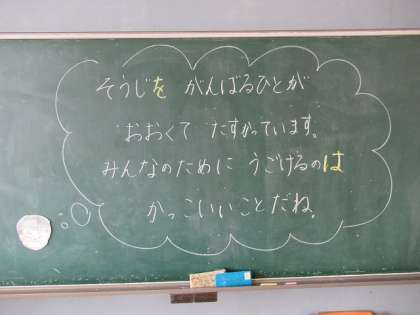 そうじを がんばるひとが
おおくて たすかっています。
みんなのために うごけるのは
かっこいいことだね。